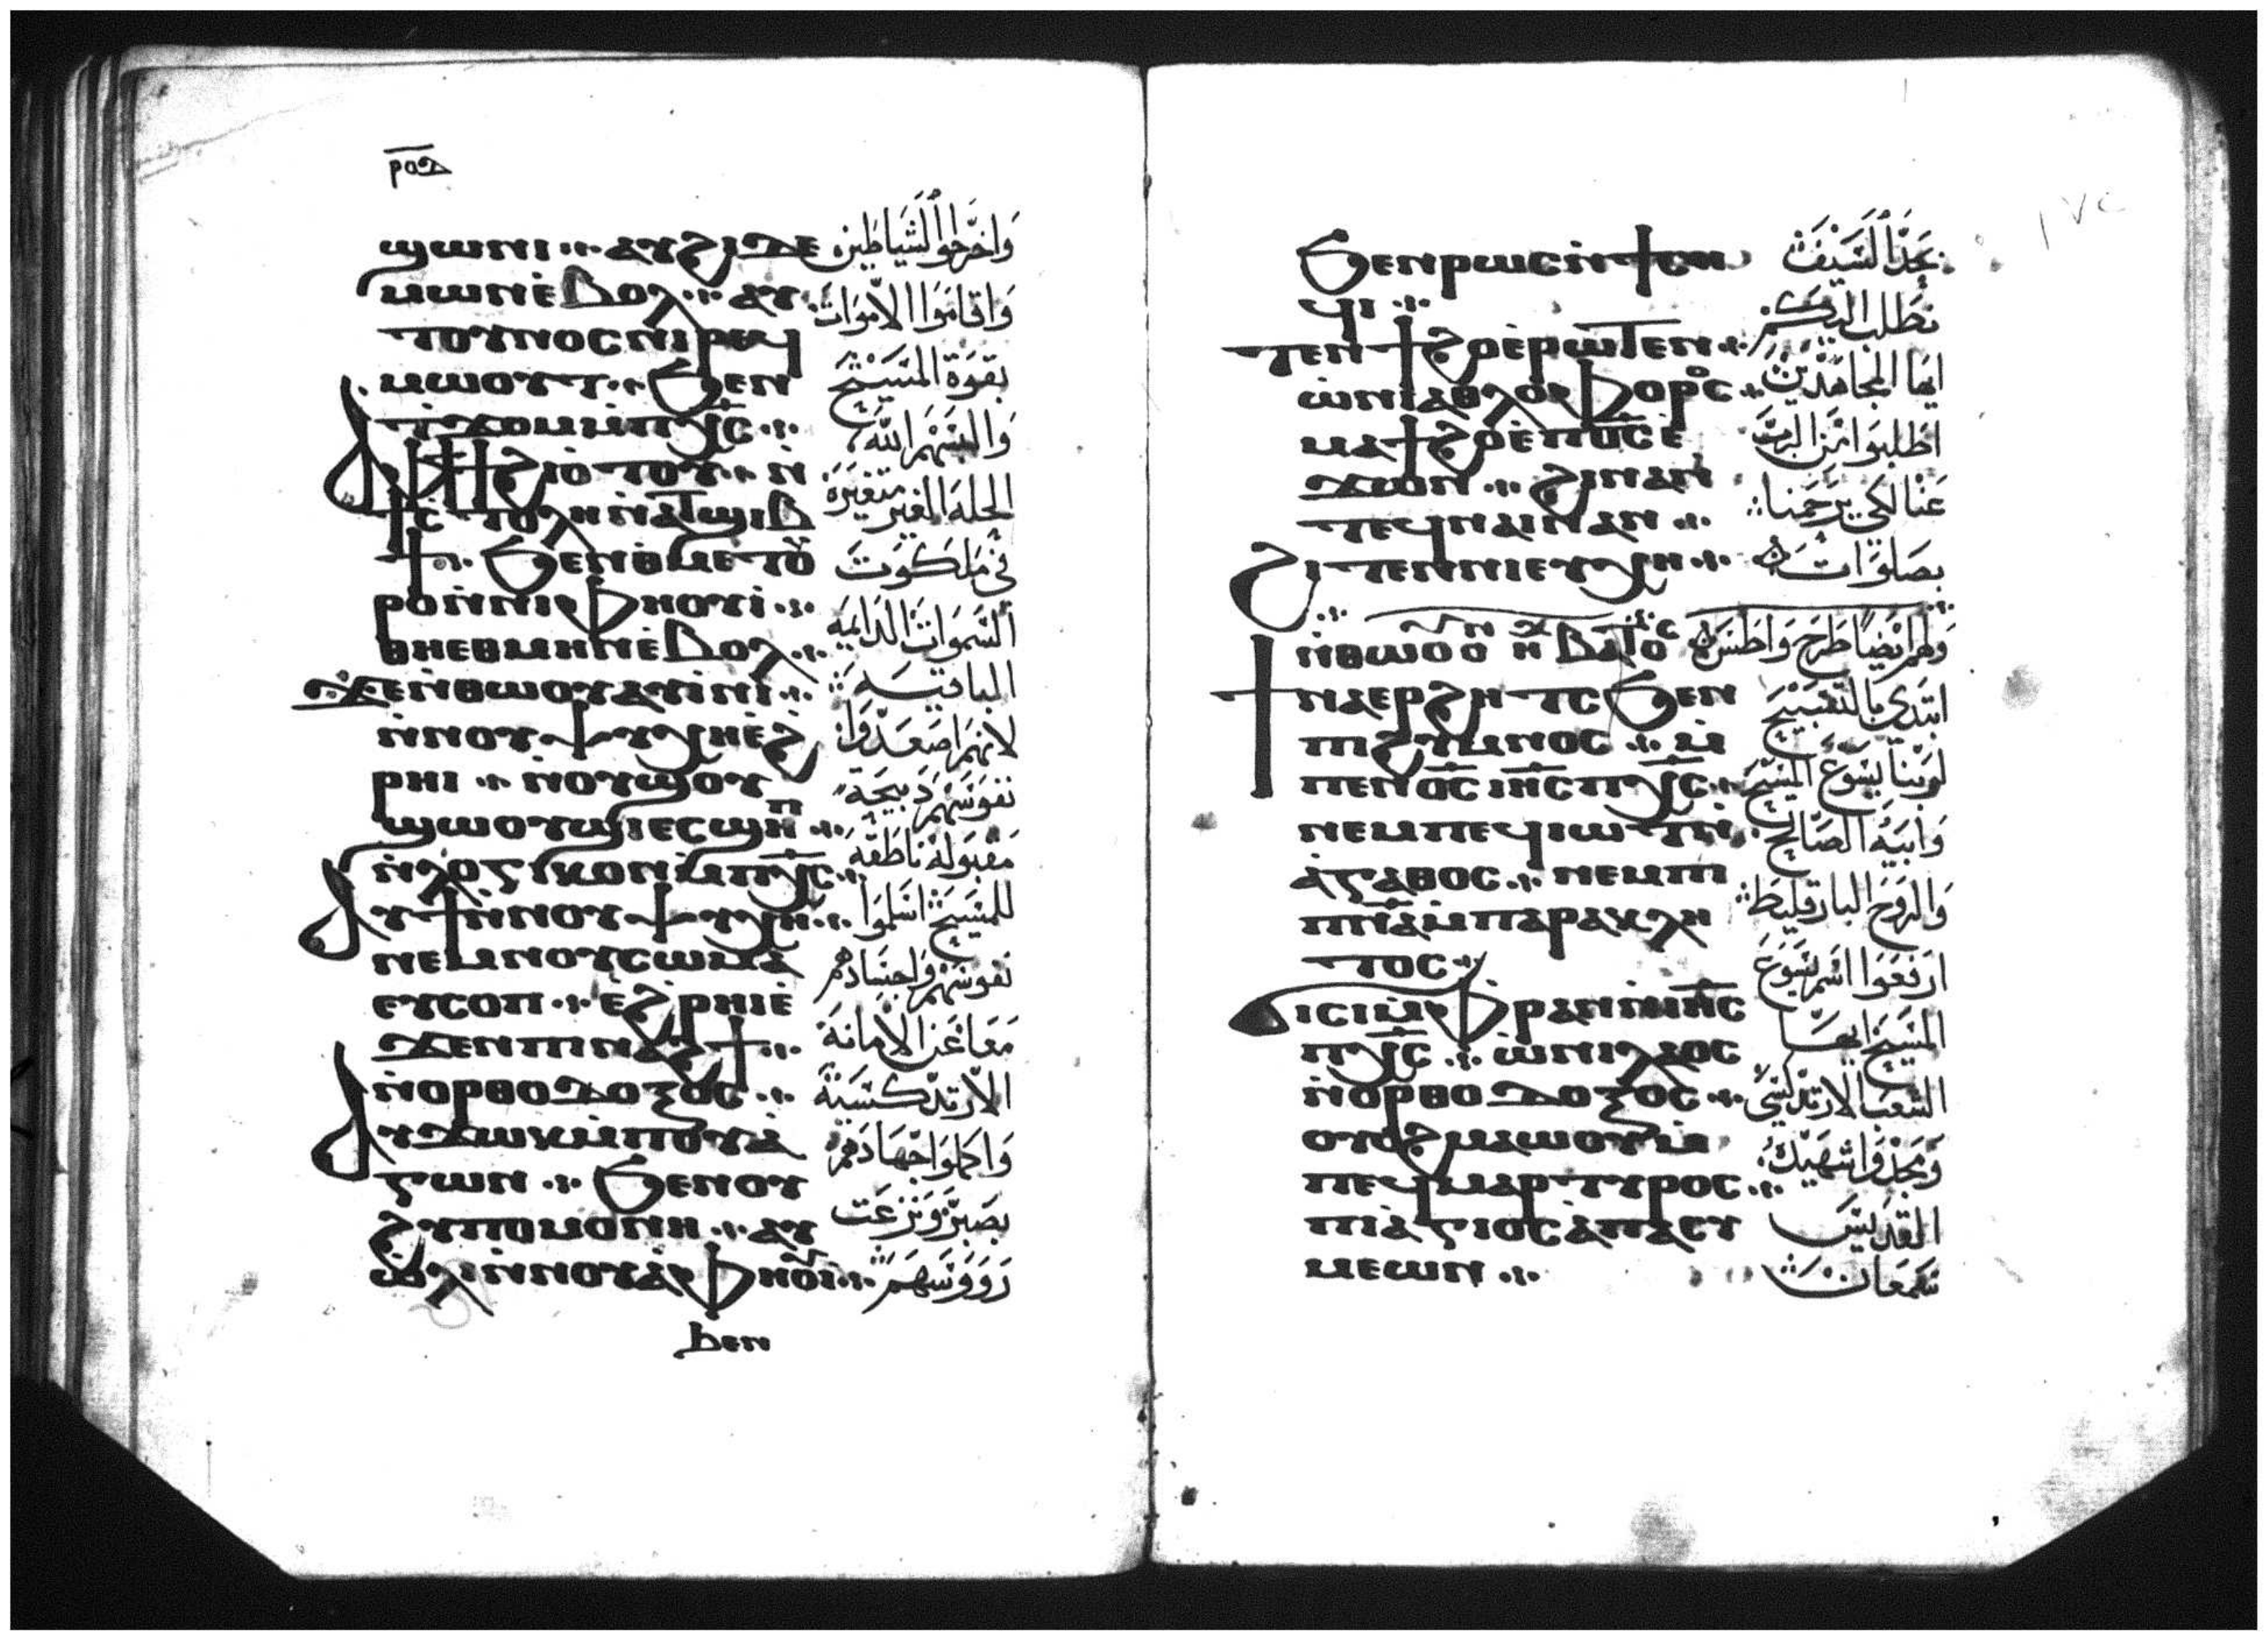 ⲣⲟⲇ
ϣⲱⲛⲓ ⁘ ⲁⲩϩⲓⲇⲉ
ⲙⲱⲛⲉ̀ⲃⲟⲗ ⁘ ⲁⲩ
ⲧⲟⲩⲛⲟⲥⲛⲓⲣⲉϥ
ⲙⲱⲟⲩⲧ ⁘ ϧⲉⲛ
ⲧ̀ϫⲟⲙⲙ̀ⲡⲭ̅ⲥ̅ ⁘
ⲁⲫϯϩⲓⲟ̀ⲧⲟⲩ ⁘ ⲛ̀
ϯⲥ̀ⲧⲟⲗⲏⲛ̀ⲁⲧϣⲓⲃ
ϯ ⁘ ϧⲉⲛⲑⲙⲉⲧⲟⲩ
ⲣⲟⲛ̀ⲛⲓⲫⲏⲟⲩⲓ̀ ⁘
ⲑⲏⲉⲑⲙⲏⲛⲉ̀ⲃⲟⲗ ⁘
ϫⲉⲛ̀ⲑⲱⲟⲩⲁⲩⲓ̀ⲛⲓ ⁘
ⲛ̀ⲛⲟⲩⲯⲩⲭⲏⲉ̀ϩ
ⲣⲏⲓ ⁘ ⲛ̀ⲟⲩϣⲟⲩ
ϣⲱⲟⲩϣⲓⲉⲥϣⲏⲡ ⁘
ⲛ̀ⲗⲟⲅⲓⲕⲟⲛⲙ̀ⲡⲭ̅ⲥ̅ ⁘
ⲁⲩϯⲛ̀ⲛⲟⲩⲯⲩⲭⲏ ⁘
ⲛⲉⲙⲛⲟⲩⲥⲱⲙⲁ
ⲉⲩⲥⲟⲡ ⁘ ⲉ̀ϩⲣⲏⲓⲉ̀
ϫⲉⲛⲡⲓⲛⲁϩϯ ⁘
ⲛ̀ⲟⲣⲑⲟⲇⲟⲝⲟⲥ ⁘
ⲁⲩϫⲱⲕⲙ̀ⲡⲟⲩⲁ̀
ⲅⲱⲛ ⁘ ϧⲉⲛⲟⲩ
ϩⲩⲡⲟⲙⲟⲛⲏ ⁘ ⲁⲩ
ⲱⲗⲓ̀ⲛ̀ⲛⲟⲩⲁ̀ⲫⲏⲟⲩⲓ̀ ⁘
ϧⲉⲛ
وَاخرَجوا الشيَاطِين
وَاقامَوا الامَوَات
بقوَة المسَيح
وَالبسَهم اللّه
الحلة الغير متغيرَة
في مَلكوَت
السَموَات الدَايمَة
الباقيَه
لانهم اصَعَدَوا
نفوسَهم دَبيحَة
مقبوله ناطقة
للمسَيح اسَلموَا
نفوسَهم وَاجسَادهم
مَعَا عَن الامَانة
الارتدكسَية
وَاكملوا جهادَهم
بصَبر وَنزعَت
رَووَسَهم
ϧⲉⲛⲣⲱⲥⲛ̀ϯⲥⲏ
ϥⲓ ⁘
ⲧⲉⲛϯϩⲟⲉ̀ⲣⲱⲧⲉⲛ ⁘
ⲱ̀ⲛⲓⲁⲑⲗⲟⲫⲟⲣⲟⲥ ⁘
ⲙⲁϯϩⲟⲉ̀ⲡⲟ̅ⲥ̅ⲉ̀
ϫⲱⲛ ⁘ ϩⲓⲛⲁⲛ̀
ⲧⲉϥⲛⲁⲓⲛⲁⲛ ⁘
ϩⲓⲧⲉⲛⲛⲓⲉⲩⲭⲏ ⁘
ⲛ̀ⲑⲱⲟⲩ ⲟⲛ ⲏⲭ ⲃⲁⲧⲟⲥ
ϯⲛⲁⲉⲣϩⲏⲧⲥ ϧⲉⲛ
ⲡⲓϩⲩⲙⲛⲟⲥ ⁘ ⲙ̀
ⲡⲉⲛⲟ̅ⲥ̅ ⲓⲏ̅ⲥ̅ⲡⲭ̅ⲥ̅ ⁘
ⲛⲉⲙⲡⲉϥⲓⲱⲧⲛ̀
ⲁ̀ⲅⲁⲑⲟⲥ ⁘ ⲛⲉⲙⲡⲓ
ⲡ̅ⲛ̅ⲁ̅ⲙ̀ⲡⲁⲣⲁⲕⲗⲏ
ⲧⲟⲥ ⁘
ϭⲓⲥⲓⲙ̀ⲫⲣⲁⲛⲛ̀ⲓⲏ̅ⲥ̅
ⲡⲭ̅ⲥ̅ ⁘ ⲱ̀ⲛⲓⲗⲁⲟⲥ
ⲛ̀ⲟⲣⲑⲟⲇⲟⲝⲟⲥ ⁘
ⲟⲩⲟϩⲙⲁⲱⲟⲩⲙ̀
ⲡⲉϥⲙⲁⲣⲧⲩⲣⲟⲥ ⁘
ⲡⲓⲁ̀ⲅⲓⲟⲥⲁ̀ⲡⲁⲥⲩ
ⲙⲉⲱⲛ ⁘
بحَدّ السَيف
نطَلب اليكم
ايها المجاهدَين
اطَلبوا مَن الربَّ
عَنا لكي يرَحمَنا
بصَلوَاتهم
وَلهم ايضًا طَرح وَاطسَ
ابتدَي بالتسَبيح
لرَبنا يسَوع المسَيح
وَابيه الصَالح
وَالروَح البارقليط
ارَفعَوا اسَم يسَوعَ
المسَيح ايها
الشعَب الارتدكسَي
وَمجدَوا شهيدَه
القدَيسَ
سَمعَان